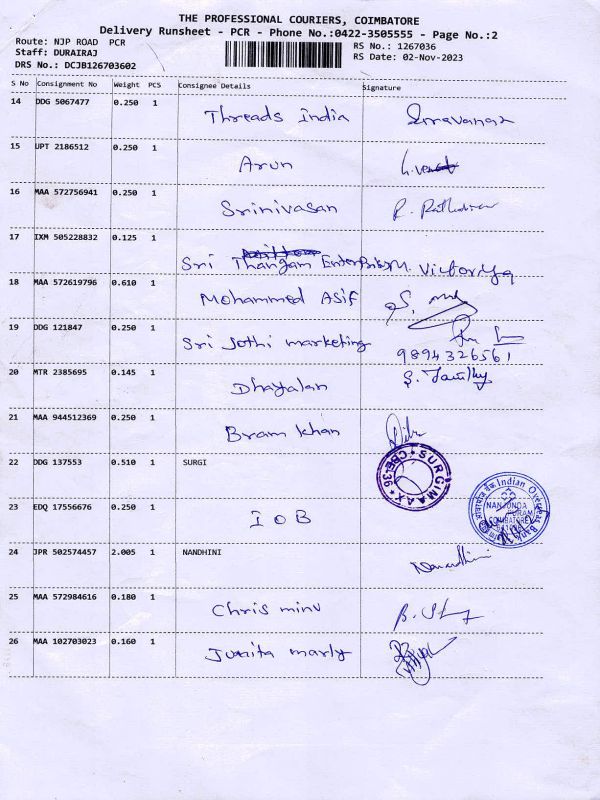 THE PROFESSIONAL COURIERS, COIMBATORE
Delivery Runsheet - PCR - Phone No.:0422-3505555 - Page No.:2
Route: NJP ROAD PCR
Staff: DURAIRAJ
DRS No.: DCJB126703602
RS No.: 1267036
RS Date: 02-Nov-2023
S No Consignment No Weight PCS Consignee Details Signature
14 DDG 5067477 0.250 1 Threads India Saravanan
15 UPT 2186512 0.250 1 Arun
16 MAA 572756941 0.250 1 Srinivasan
17 IXM 505228832 0.125 1 Sri Thangam Enterprises M. Victoriya
18 MAA 572619796 0.610 1 Mohammed Asif
19 DDG 121847 0.250 1 Sri Jothi marketing 9894326561
20 MTR 2385695 0.145 1 Dhayalan
21 MAA 944512369 0.250 1 Bram khan
22 DDG 137553 0.510 1 SURGI
SURGIMAAX CBE-36
23 EDQ 17556676 0.250 1 IOB
Indian Overseas Bank
NANJUNDA
PURAM
COIMBATORE
24 JPR 502574457 2.005 1 NANDHINI Nanadhini
25 MAA 572984616 0.180 1 Chris minu
26 MAA 102703023 0.160 1 Junita marly